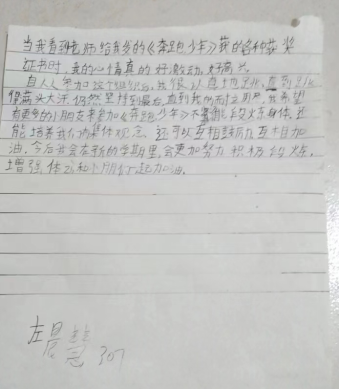 当我看到老师给我发的《奔跑少年》获的各种获奖
证书时，我的心情真的好激动，好高兴
自从参加这个组织后，我很认真也
满头大汗，仍然坚持到最后，直到我 我希望
有更多的小朋友来参加《奔跑少年》不能锻炼身体，还
能培养我们的集体观念，还可以互相鼓励互相加
油，今后我会在新的学期里，会更加努力积极锻炼，
增强体 和小朋友们一起加油。
左晨慧 307